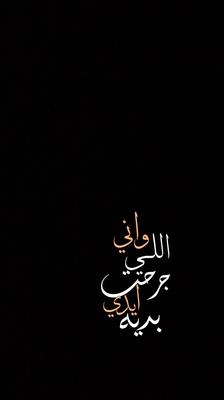 واني
اللي
جرحت
ايدي
بديه